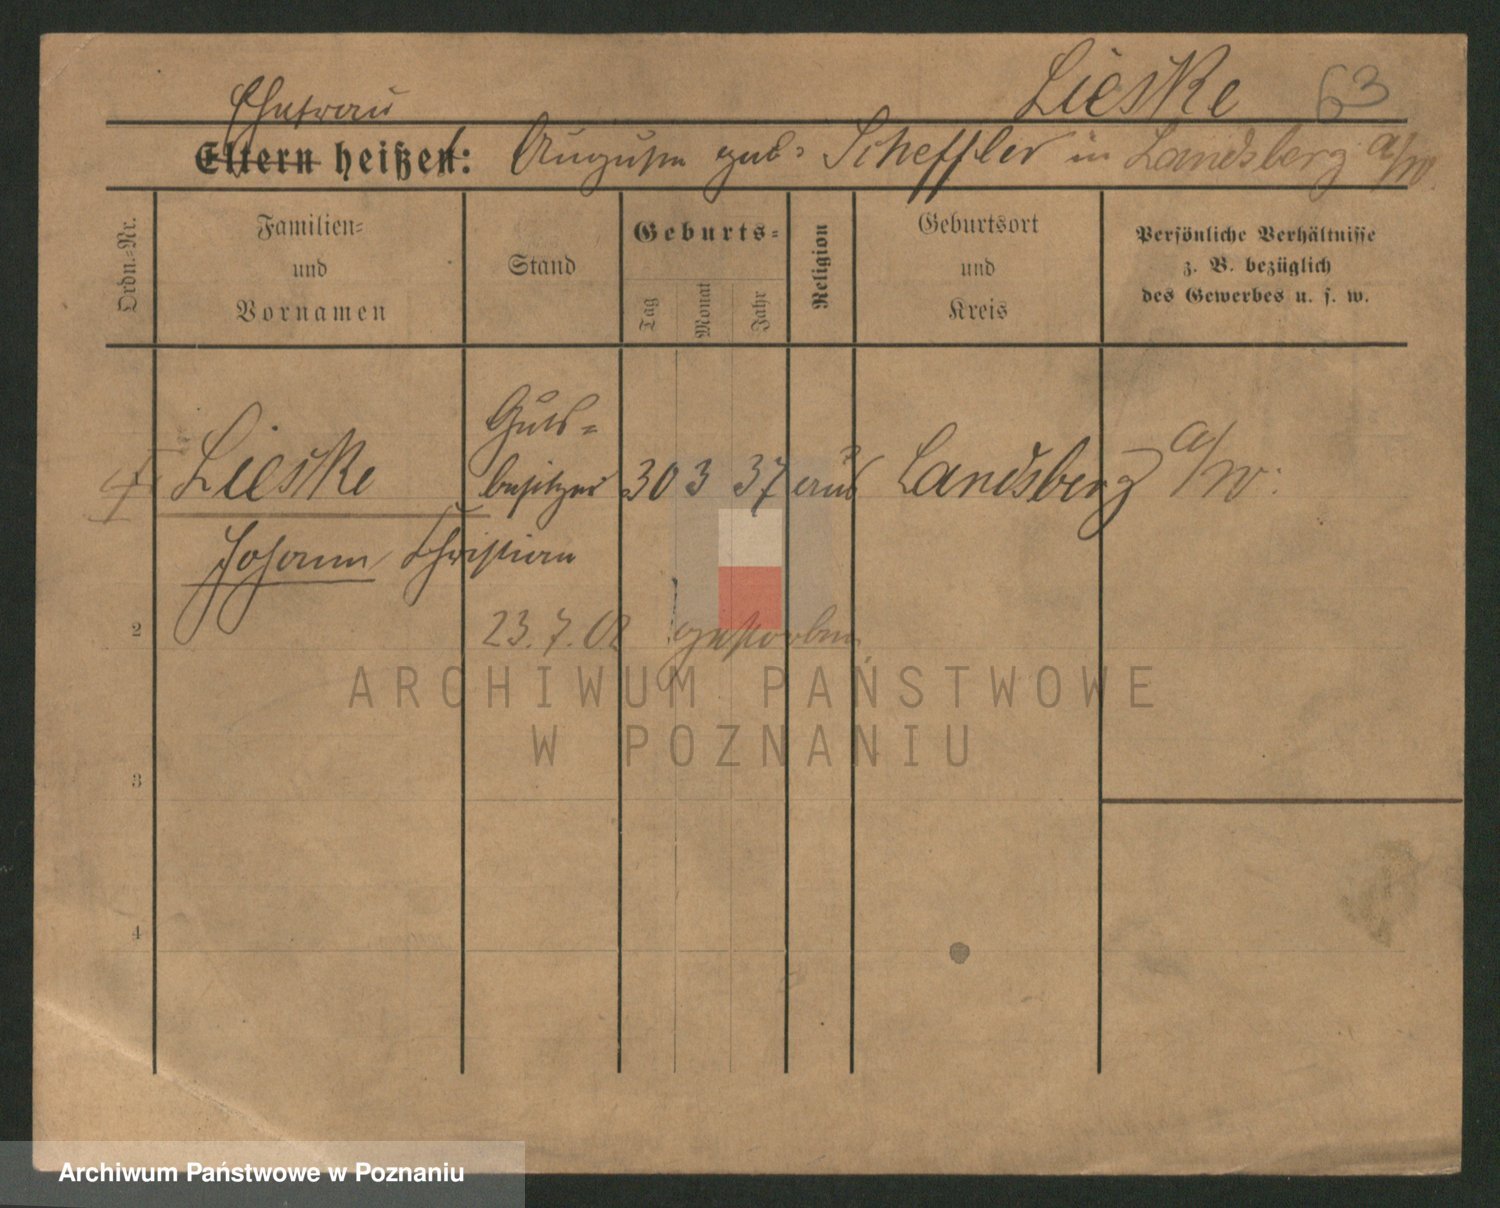 Lieske 63
Ehefrau
Eltern heißen: Auguste geb. Scheffler in Landsberg a/W.
Ordn.-Nr.
Familien-
und
Vornamen
Stand
Geburts-
Tag
Monat
Jahr
Religion
Geburtsort
und
Kreis
Persönliche Verhältnisse
z. B. bezüglich
des Gewerbes u. s. w.
Guts-
Lieske besitzer 30 3 37 Landsberg a/W.
Johann Christian
2
23. 7. 02 gestorben
ARCHIWUM PAŃSTWOWE
W POZNANIU
3
4
Archiwum Państwowe w Poznaniu